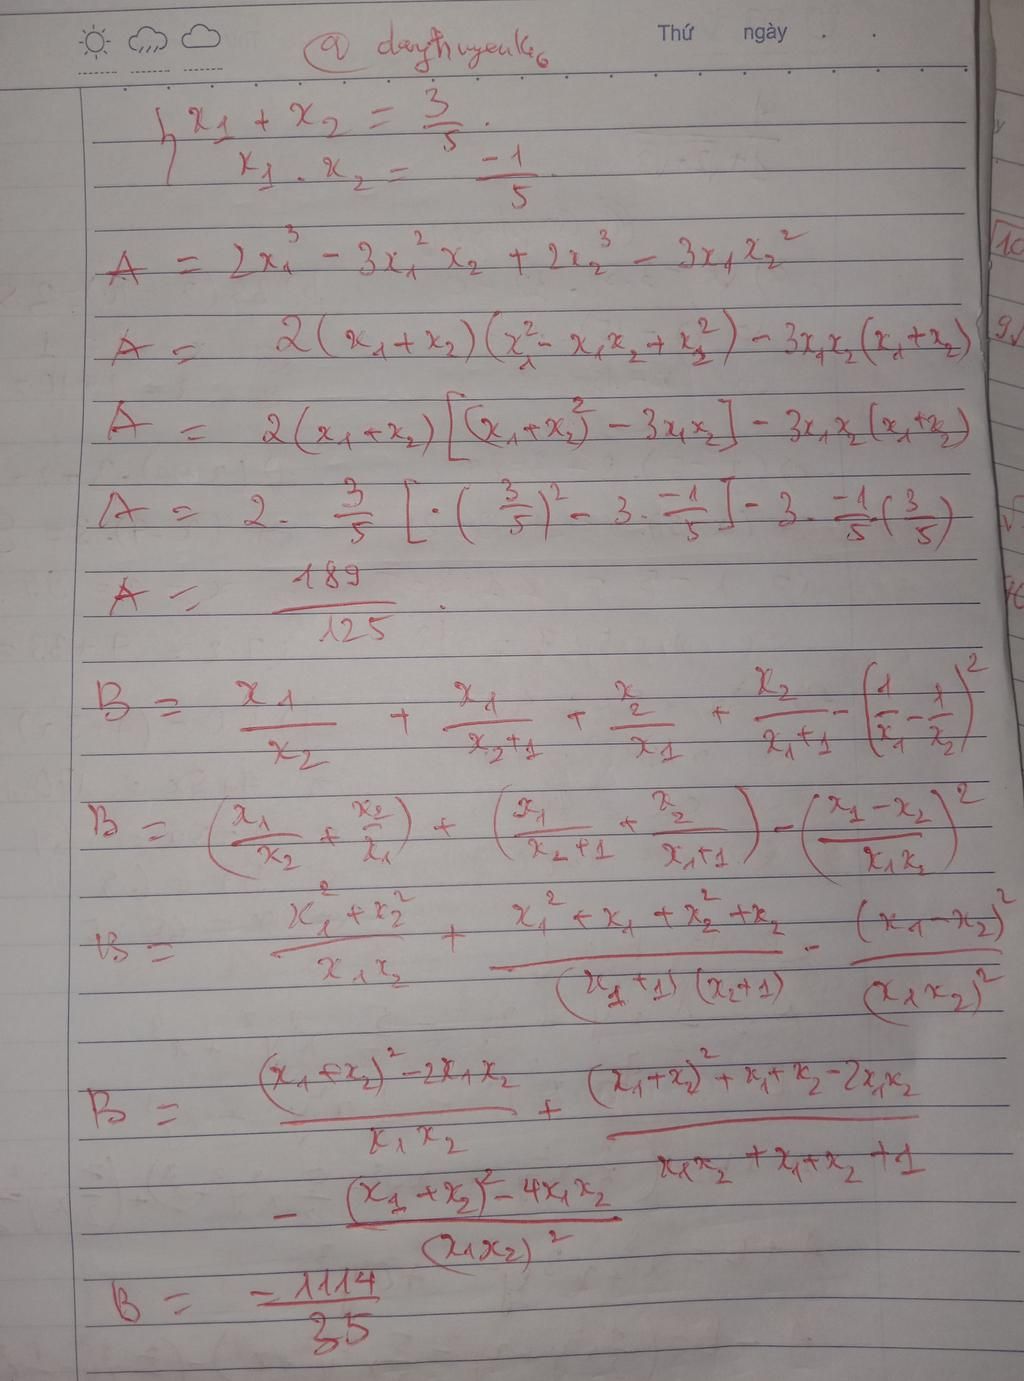 Thứ ngày . .
x₁ + x₂ = 3/5 .
x₁ . x₂ = -1/5
A = 2x₁³ - 3x₁²x₂ + 2x₂³ - 3x₁x₂²
A = 2(x₁+x₂)(x₁² - x₁x₂ + x₂²) - 3x₁x₂(x₁+x₂)
A = 2(x₁+x₂)[(x₁+x₂)² - 3x₁x₂] - 3x₁x₂(x₁+x₂)
A = 2 . 3/5 [ . (3/5)² - 3 . -1/5 ] - 3 . -1/5 . (3/5)
A = 189/125 .
B = x₁/x₂ + x₁/(x₂+1) + x₂/x₁ + x₂/(x₁+1) - (1/x₁ - 1/x₂)²
B = (x₁/x₂ + x₂/x₁) + (x₁/(x₂+1) + x₂/(x₁+1)) - ((x₁ - x₂)/(x₁x₂))²
B = (x₁² + x₂²)/(x₁x₂) + (x₁² + x₁ + x₂² + x₂)/((x₁+1)(x₂+1)) - (x₁ - x₂)²/(x₁x₂)²
B = ((x₁+x₂)² - 2x₁x₂)/(x₁x₂) + ((x₁+x₂)² + x₁ + x₂ - 2x₁x₂)/(x₁x₂ + x₁ + x₂ + 1)
- ((x₁+x₂)² - 4x₁x₂)/(x₁x₂)²
B = -1114/35